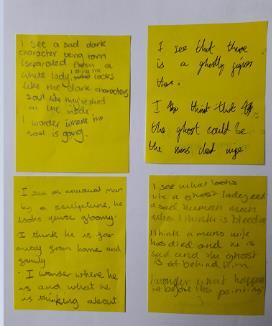 I see a sad dark
character being torn
separated from a
white lady, who looks
like the dark characters
soul
in the
I wonder where his
soul is going.
I see that there
is a ghostly figure
I think that
the ghost could be
the dead wife
I see an unusual man
by a sculpture, he
looks quite gloomy.
I think he is far
away from home and
family
I wonder where he
is and what he
is thinking about
I see what looks
like a ghost
a sad human
who I think is bleeding
I think a mans wife
has died and he is
sad and the ghost
is behind him
I wonder what happened
before this painting